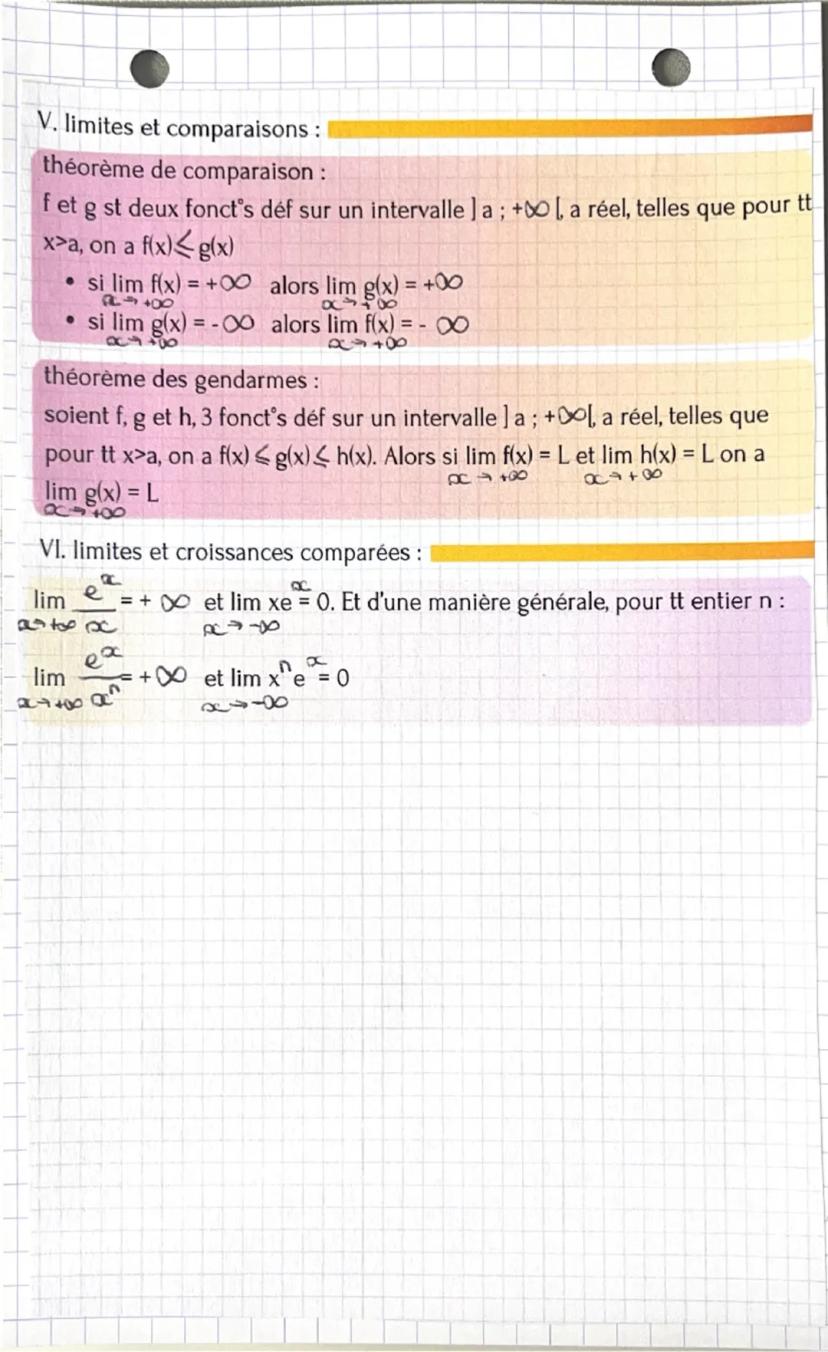 V. limites et comparaisons :
théorème de comparaison :
f et g st deux fonct°s déf sur un intervalle ] a ; +∞ [, a réel, telles que pour tt
x>a, on a f(x)⩽g(x)
• si lim f(x) = +∞ alors lim g(x) = +∞
x→+∞ x→+∞
• si lim g(x) = -∞ alors lim f(x) = - ∞
x→+∞ x→+∞
théorème des gendarmes :
soient f, g et h, 3 fonct°s déf sur un intervalle ] a ; +∞[, a réel, telles que
pour tt x>a, on a f(x) ⩽ g(x) ⩽ h(x). Alors si lim f(x) = L et lim h(x) = L on a
x→+∞ x→+∞
lim g(x) = L
x→+∞
VI. limites et croissances comparées :
lim e^x/x = + ∞ et lim xe^x = 0. Et d'une manière générale, pour tt entier n :
x→+∞ x→-∞
lim e^x/x^n = +∞ et lim x^n e^x = 0
x→+∞ x→-∞